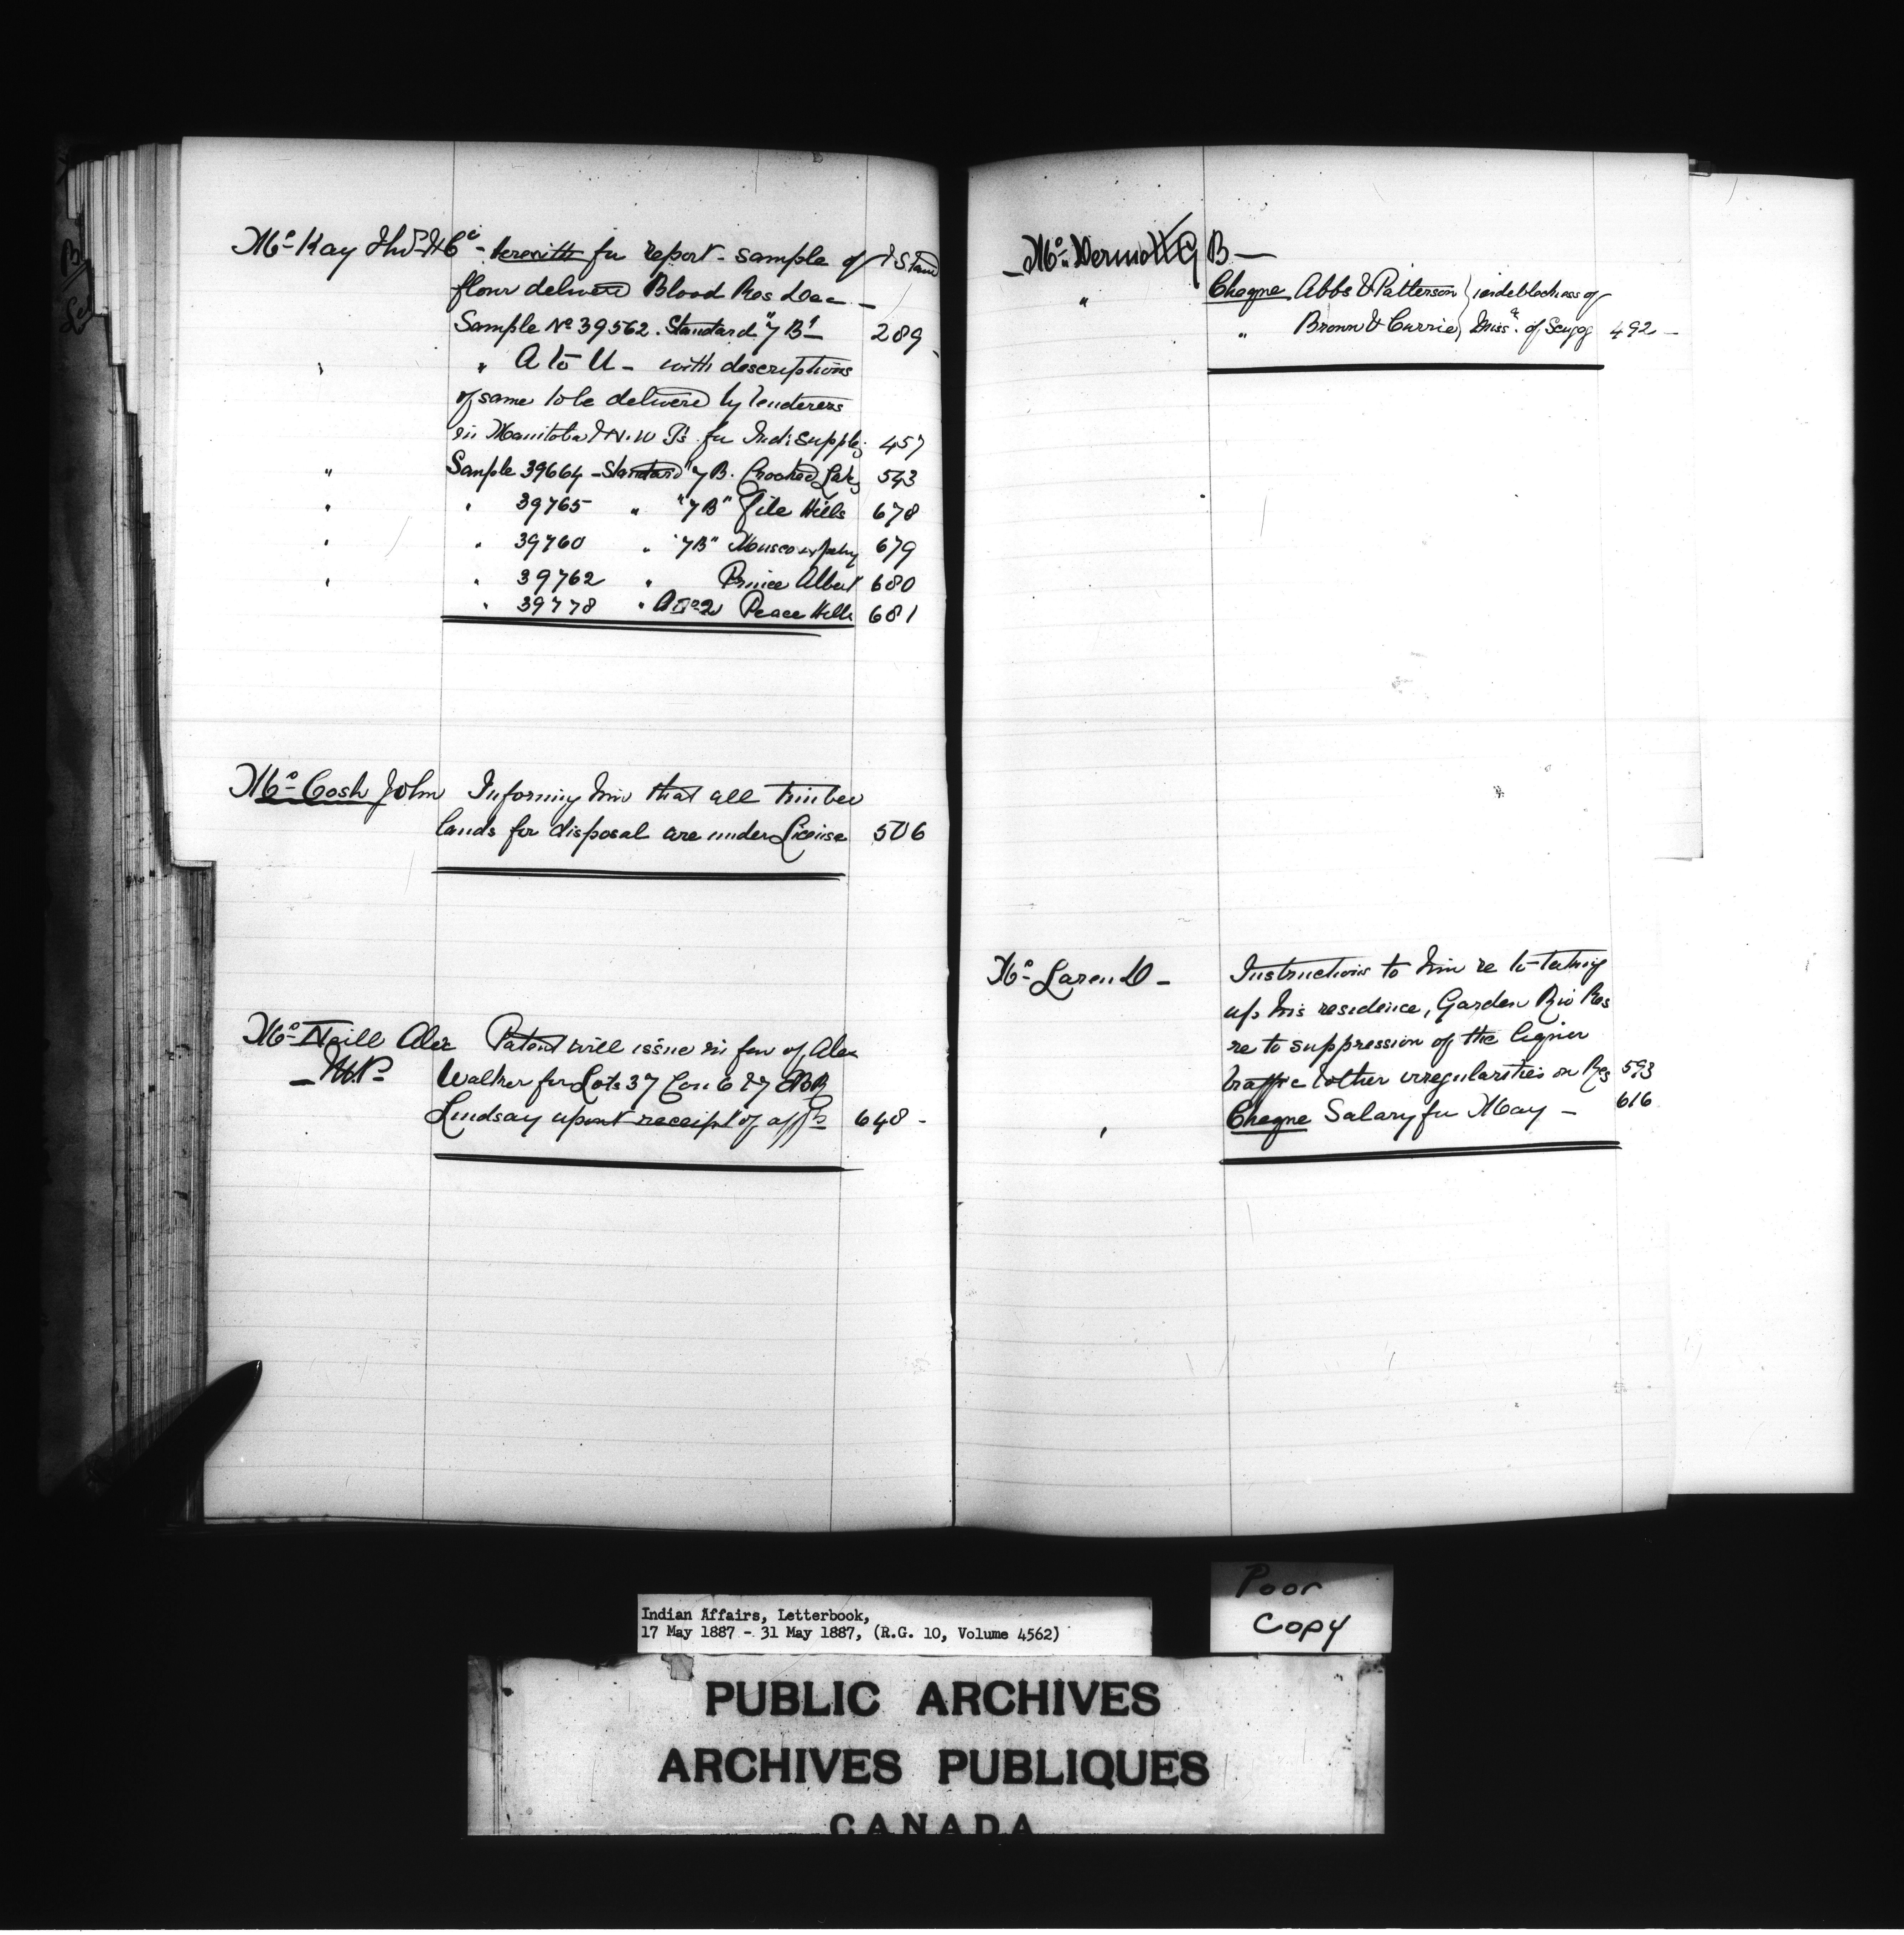 Mc Kay Thos & Co - herewith for report - sample of
flour delivered Blood Res
Sample No 39562. Standard "7 B" 289
" A to U - with descriptions
of same to be delivered by tenderers
in Manitoba & N.W Ts for Indi supplies 457
" Sample 39664 - Standard "7 B. Crooked Lakes 543
" " 39765 " "7B" File Hills 678
" " 39760 " "7B" Muscowpetung 679
" " 39762 " Prince Albert 680
" 39778 " A No 2 Peace Hills 681
Mc Cosh John Informing him that all timber
lands for disposal are under License 506
Mc Neill Alex Patent will issue in fav of Alex
M.P. Walker for Lots 37 Con 6 & 7 EBR
Lindsay upon receipt of affts 648 -
Mc Dermott G B -
" Cheque Abbs & Patterson } indebtedness of
" Brown & Currie } Missa of Scugog 492 -
Mc Laren D - Instructions to him re to taking
up his residence, Garden Riv Res
re to suppression of the liquor
traffic & other irregularities on Res 593
" Cheque Salary for May - 616
B
Poor
Copy
Indian Affairs, Letterbook,
17 May 1887 - 31 May 1887, (R.G. 10, Volume 4562)
PUBLIC ARCHIVES
ARCHIVES PUBLIQUES
CANADA